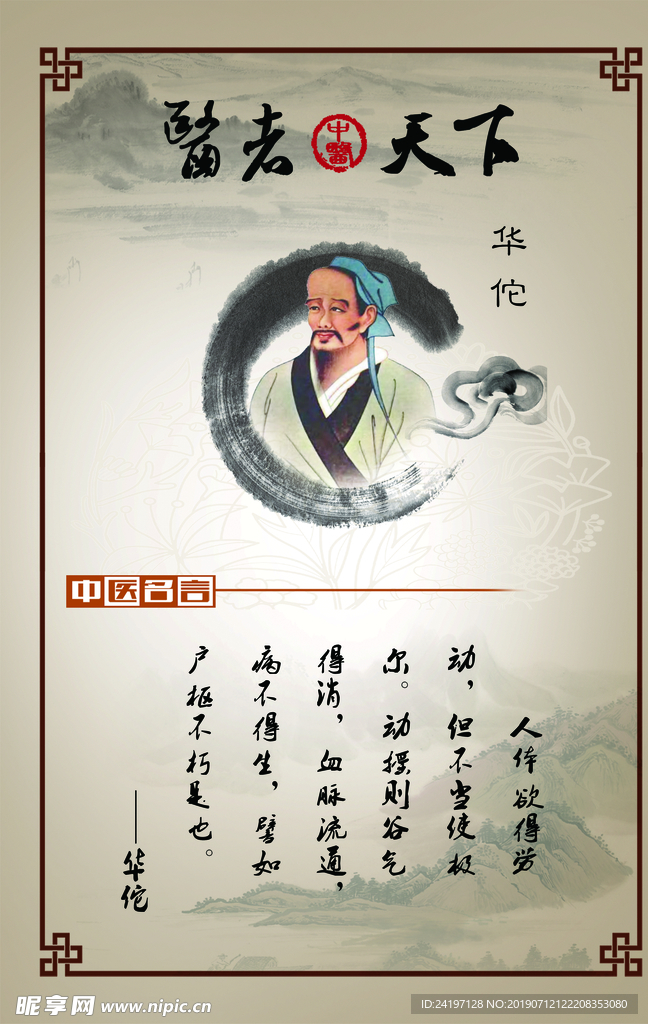 醫者中醫天下
华佗
中医名言
人体欲得劳
动，但不当使极
尔。动摇则谷气
得消，血脉流通，
病不得生，譬如
户枢不朽是也。
——华佗
昵享网 www.nipic.cn
ID:24197128 NO:20190712122208353080